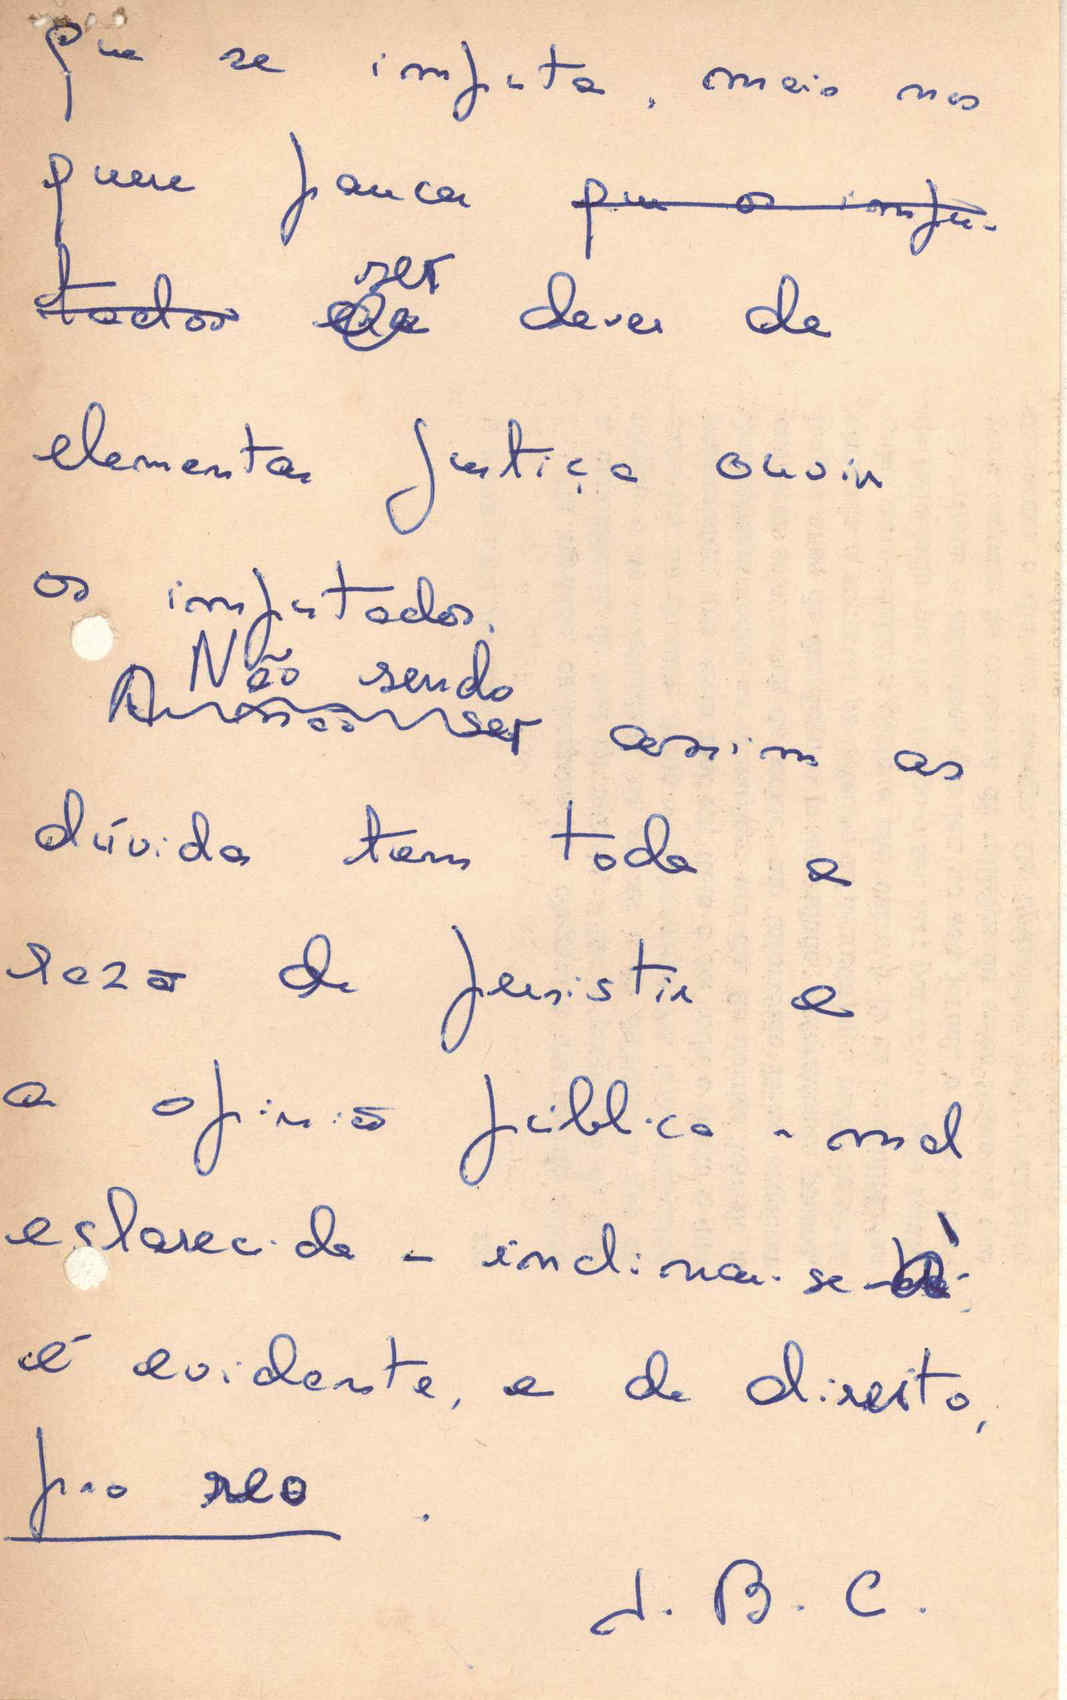 que se imputa, mais nos
quere parecer que o impu-
tados ser dever de
elementar justiça ouvir
os imputados.
Não sendo
ser assim as
dúvidas tem toda a
razão de persistir e
a opinião pública - mal
esclarecida - inclinar-se-à
é evidente, e de direito,
pro reo.
J. B. C.